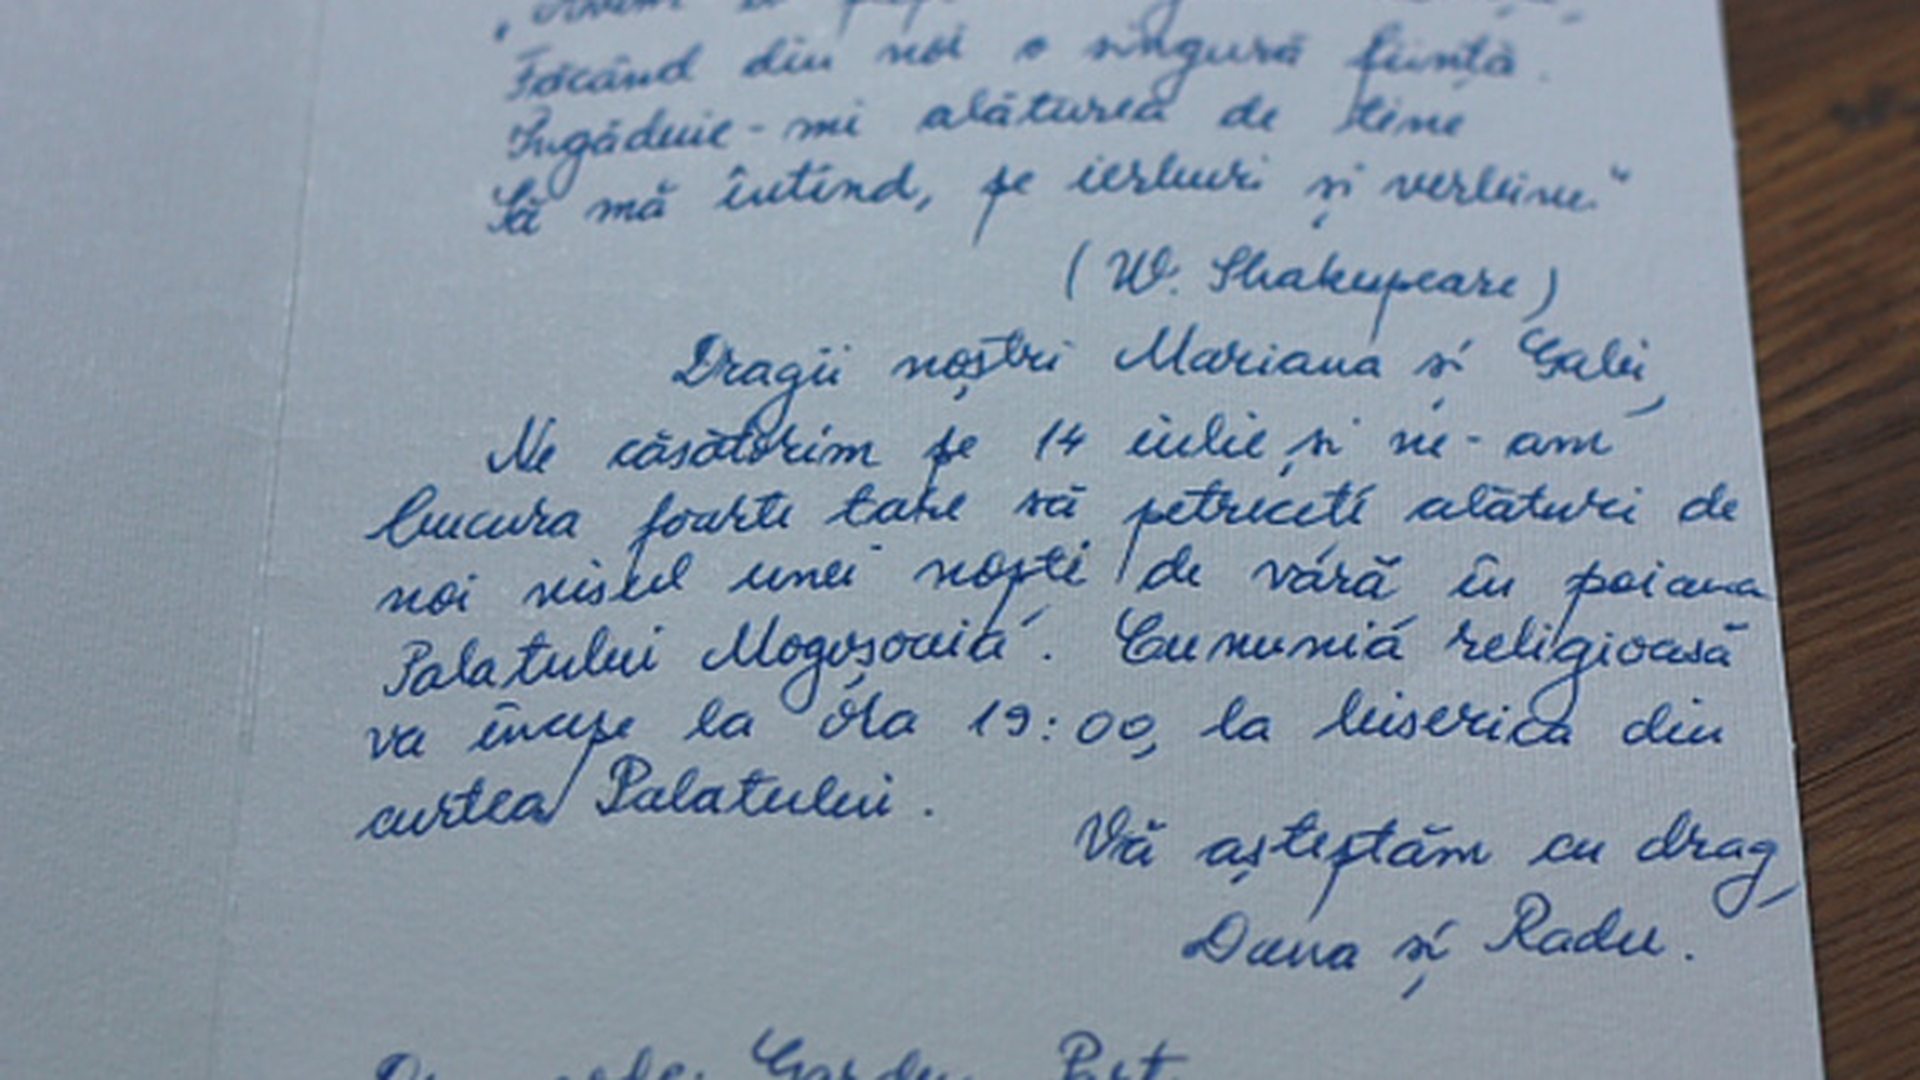 Făcând din noi o singură ființă.
Îngăduie-mi alăturea de tine
Să mă întind, pe ierburi și verbine."
(W. Shakespeare)
Dragii noștri Mariana și Gabi,
Ne căsătorim pe 14 iulie și ne-am
bucura foarte tare să petreceți alături de
noi visul unei nopți de vară în poiana
Palatului Mogoșoaia. Cununia religioasă
va începe la ora 19:00, la biserica din
curtea Palatului.
Vă așteptăm cu drag,
Dana și Radu.
Garden